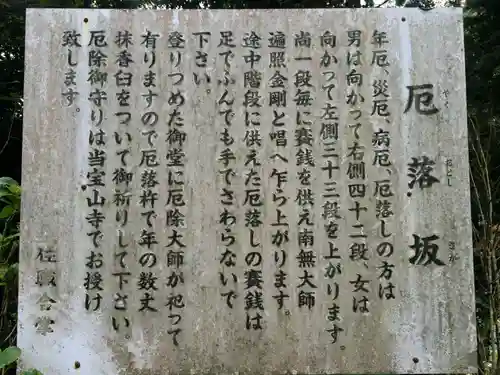 厄落坂
やく
おとし
さか
年厄、災厄、病厄、厄落しの方は
男は向かって右側四十二段、女は
向かって左側三十三段を上がります。
尚一段毎に賽銭を供え南無大師
遍照金剛と唱へ乍ら上がります。
途中階段に供えた厄落しの賽銭は
足でふんでも手でさわらないで
下さい。
登りつめた御堂に厄除大師が祀って
有りますので厄落杵で年の数丈
抹香臼をついて御祈りして下さい。
厄除御守りは当宝山寺でお授け
致します。